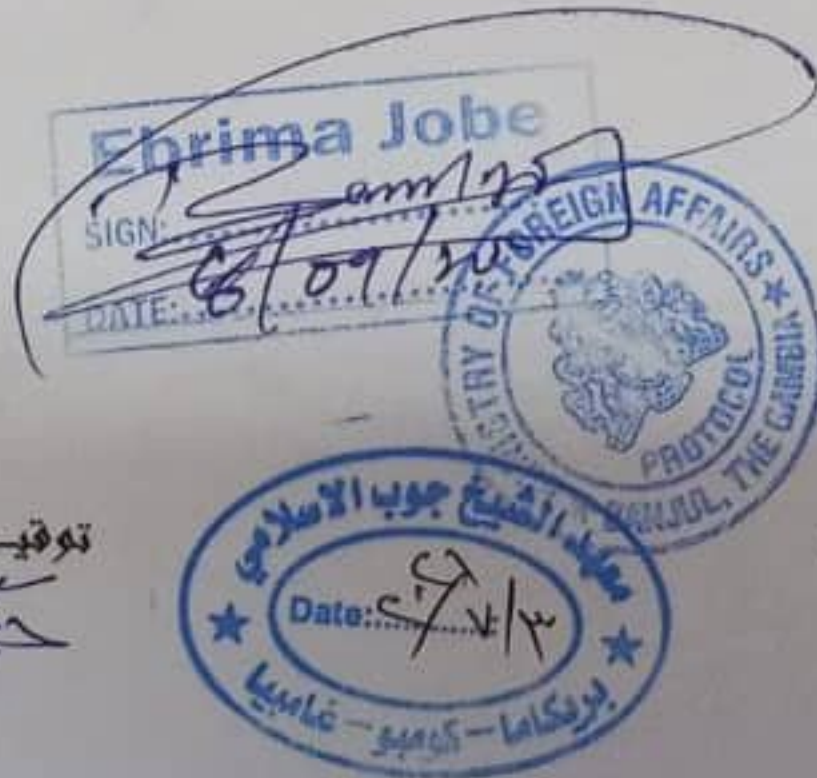 Ebrima Jobe
SIGN:
DATE: 8/09/20
MINISTRY OF FOREIGN AFFAIRS ★
PROTOCOL
BANJUL, THE GAMBIA
معهد الشيخ جوب الاسلامي
Date:
★ بريكاما - كومبو - غامبيا ★